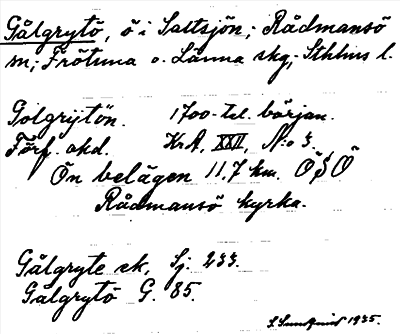 Gålgrytö, ö i Saltsjön; Rådmansö
sn; Frötuna o. Länna skg; Sthlms l.
Golgrijtön. 1700-tal. början.
Förf. okd. KrA, XXII, N:o 3.
Ön belägen 11,7 km. ÖSÖ
Rådmansö kyrka.
Gålgryte sk, Sj. 233.
Gålgrytö G. 85.
1935.